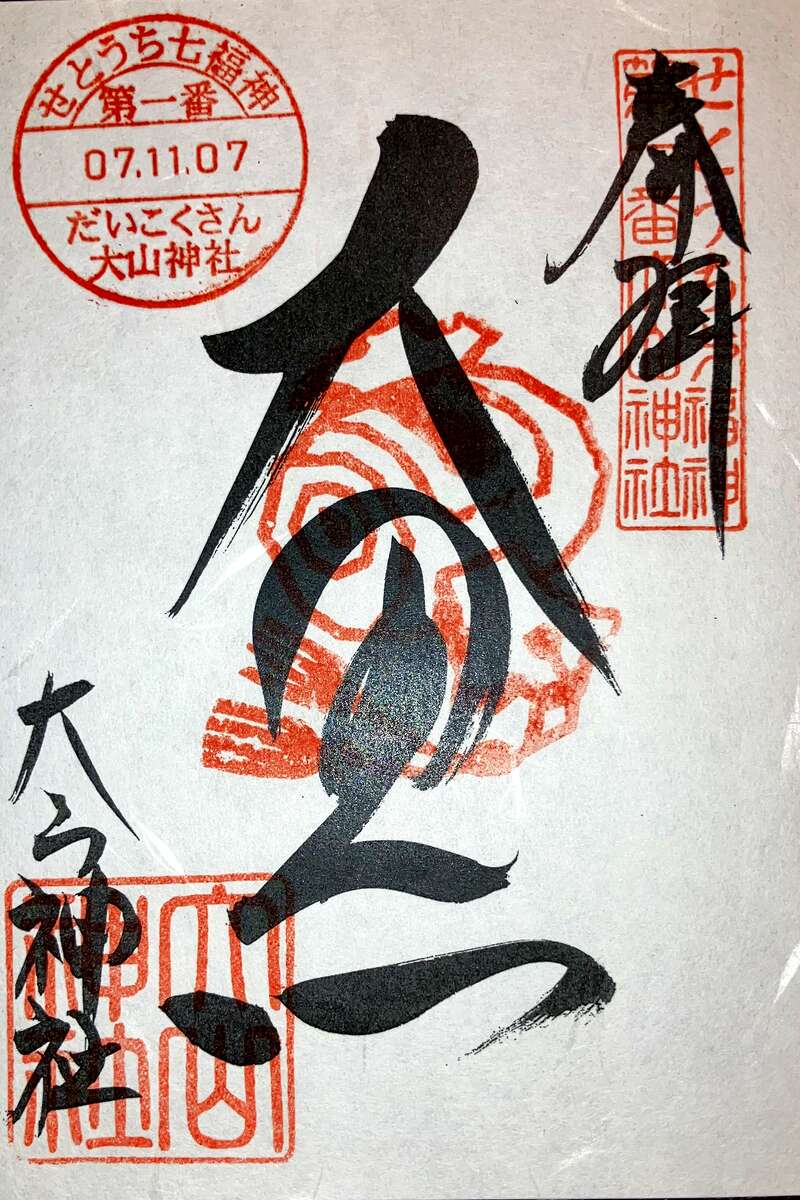 せとうち七福神
第一番
07.11.07
だいこくさん
大山神社
奉拝
せとうち七福神
第一番大山神社
大黒天
大山神社
大山神社